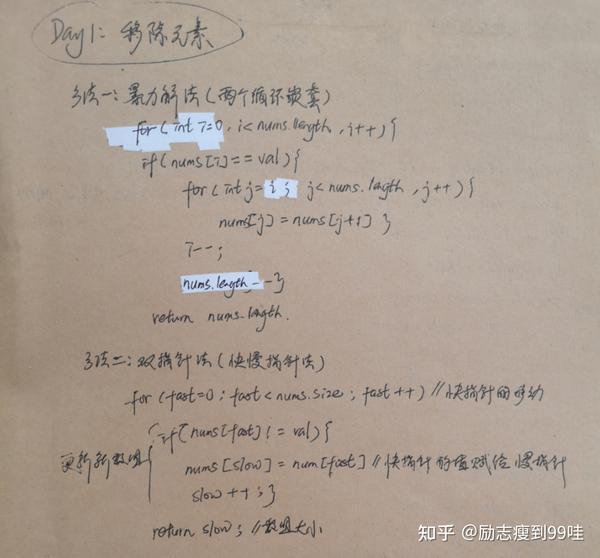 Day1: 移除元素
方法一:暴力解法(两个循环嵌套)
for(int i=0,i<nums.length,i++){
if(nums[i]==val){
for(int j=i; j<nums.length,j++){
nums[j]=nums[j+1]}
i--;
nums.length--}
return nums.length.
方法二:双指针法(快慢指针法)
for(fast=0;fast<nums.size;fast++)//快指针的移动
if(nums[fast]!=val){
更新新数组
nums[slow]=num[fast]//快指针的值赋给慢指针
slow++;}
return slow;//数组大小
知乎 @励志瘦到99哇